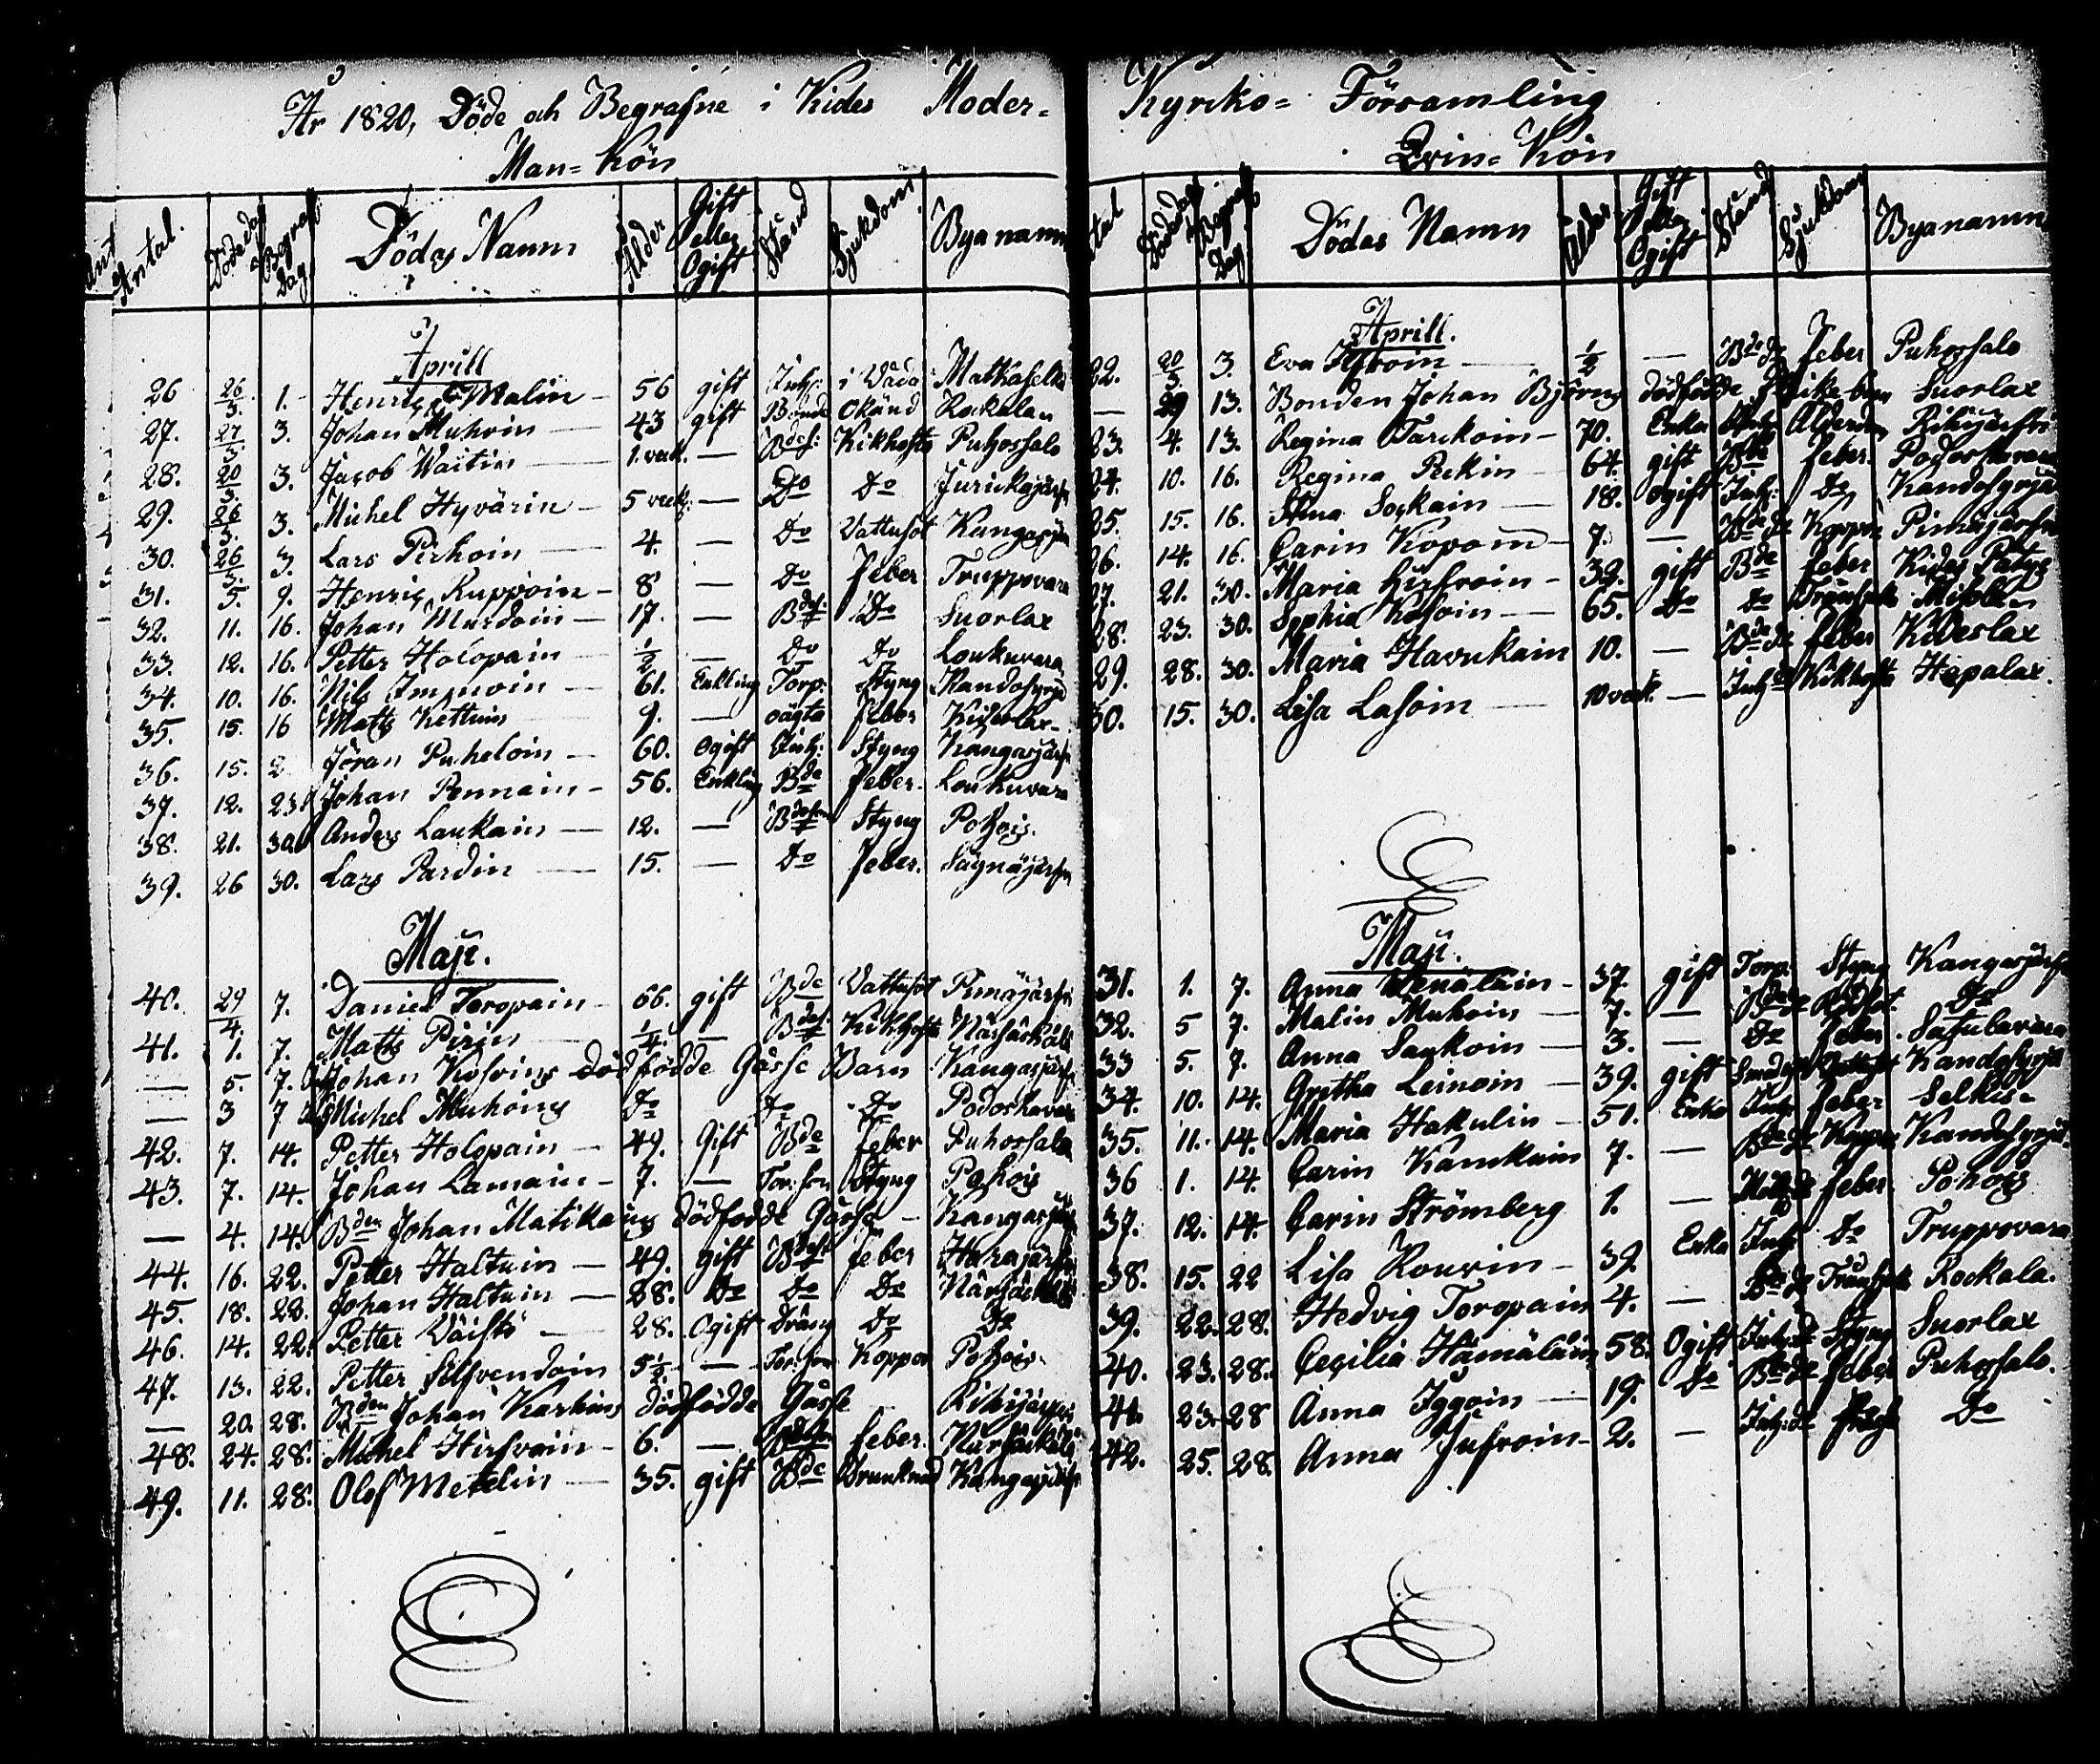 År 1820, Döde och Begrafne i Kides Moder=
Man=Kön
Antal. Dödedag Begraf: Dag Dödas Namn Ålder Gift eller Ogift Stånd Sjukdom Byanamn
Aprill
26 26/3. 1. Henric Malin 56 gift Inh: i Våda
27. 27/3. 3. Johan Muhoin 43 gift Bonde Okänd Rockalan
28. 20/3. 3. Jacob Waitin 1. veck. — Bdes: Kikhosta Puhossalo
29. 26/3. 3. Michel Hyvärin 5 veck: — Do Do
30. 26/3. 3. Lars Pirhoin 4. — Do Vattusot Kangasjär
31. 5. 9. Henric Ruppoin 8 — Do feber Truppovara
32. 11. 16. Johan Mustoin 17. — Bdes: Do Suorlax
33. 12. 16. Petter Holopain 1/2 — Do Do Loukuvara
34. 10. 16. Nils Imnoin 61. Enkling Torp: Styng Kandosyrjä
35. 15. 16 Matts Kettuin 9. — oägta feber Kideslax
36. 15. 2 Jöran Puheloin 60. Ogift Inh: Styng Kangasjärf
37. 12. 23. Johan Pennain 56. Enkling Bde feber. Loukuvara
38. 21. 30. Anders Laukain 12. — Bdeson Styng Pohois.
39. 26 30. Lars Pardin 15. — Do feber. Sägnäjärfvi
Maji.
40. 29/4. 7. Daniel Toropain 66. gift Bde Vattusot
41. 1. 7. Matts Pirin 1/4. — Bdes: Kikhosta Närsäkälä
— 5. 7. Johan Kosoins dödfödde Gåsse Barn Kangasjärf
— 3 7 Michel Muhoins Do Do Do Podoskavar
42. 7. 14. Petter Holopain 49. Gift Bde feber Puhossalo
43. 7. 14. Johan Lamain 7. — Tor: son Styng Pohois
— 4. 14. Bden Johan Matikains dödfödde Gåsse — Kangasjärf
44. 16. 22. Petter Haltuin 49. gift Bdes: feber
45. 18. 22. Johan Haltuin 28. Do Do Do Närsäkälä
46. 14. 22. Petter Väistö 28. Ogift Dräng Do Do
47. 13. 22. Petter Selfvendoin 5 1/2. — Tor: son Koppor Pohois.
— 20. 28. Bden Johan Karhuns dödfödde Gåsse
48. 24. 28. Michel Hirfvoin 6. — Bdeson feber. Närsäkälä
49. 11. 28. Olof Metelin 35. gift Bde Drunknad Kangasjärf
Kyrko= Församling
Qvin=Kön
tal Dödedag Begraf: Dag Dödas Namn Ålder Gift eller Ogift Stånd Sjukdom Byanamn
Aprill.
22. 20/3 3. Eva 1/2 — Bde dr feber Puhossalo
— 29 13. Bonden Johan Björns dödfödde flicke barn Suorlax
23. 4. 13. Regina Tarckoin 70. Enka Ålderdom
24. 10. 16. Regina Peckin 64. gift Bde feber. Podoskavara
25. 15. 16. Stina Sockain 18. ogift Inh: Do Kandosyrjä
26. 14. 16. Carin Kopoin 7. — Bde dr Koppor
27. 21. 30. Maria Hirfvoin 39. gift Bde feber Kides
28. 23. 30. Sophia Kosoin 65. Do Do
29. 28. 30. Maria Havukain 10. — Bde dr feber Kideslax
30. 15. 30. Lisa Lasoin 10 veck — Inh: dr Kikhosta Hapalax.
Maji.
31. 1. 7. Anna Venäläin 37. gift Torp: Styng Kangasjärf
32. 5 7. Malin Muhoin 7. — Bde dr Do
33 5. 7. Anna Saukoin 3. — Do feber
34. 10. 14. Gretha Leinoin 39. gift Kandosyrjä
35. 11. 14. Maria Hakulin 51. Enka Inh: feber Selkis
36 1. 14. Carin Kanckain 7. — Bde dr Koppor Kandosyrjä
37. 12. 14. Carin Strömberg 1. — feber Pohois
38. 15. 22 Lisa Rouvin 39. Enka Inh: Do Truppovara
39. 22. 28. Hedvig Toropain 4. — Bde dr Rockala.
40. 23. 28. Cecilia Hämäläin 58. Ogift Inh: dr Styng Suorlax
41. 23. 28 Anna Iggoin 19. Do Bde dr feber Puhossalo.
42. 25. 28. Anna Jufroin 2. — Inh: dr Do